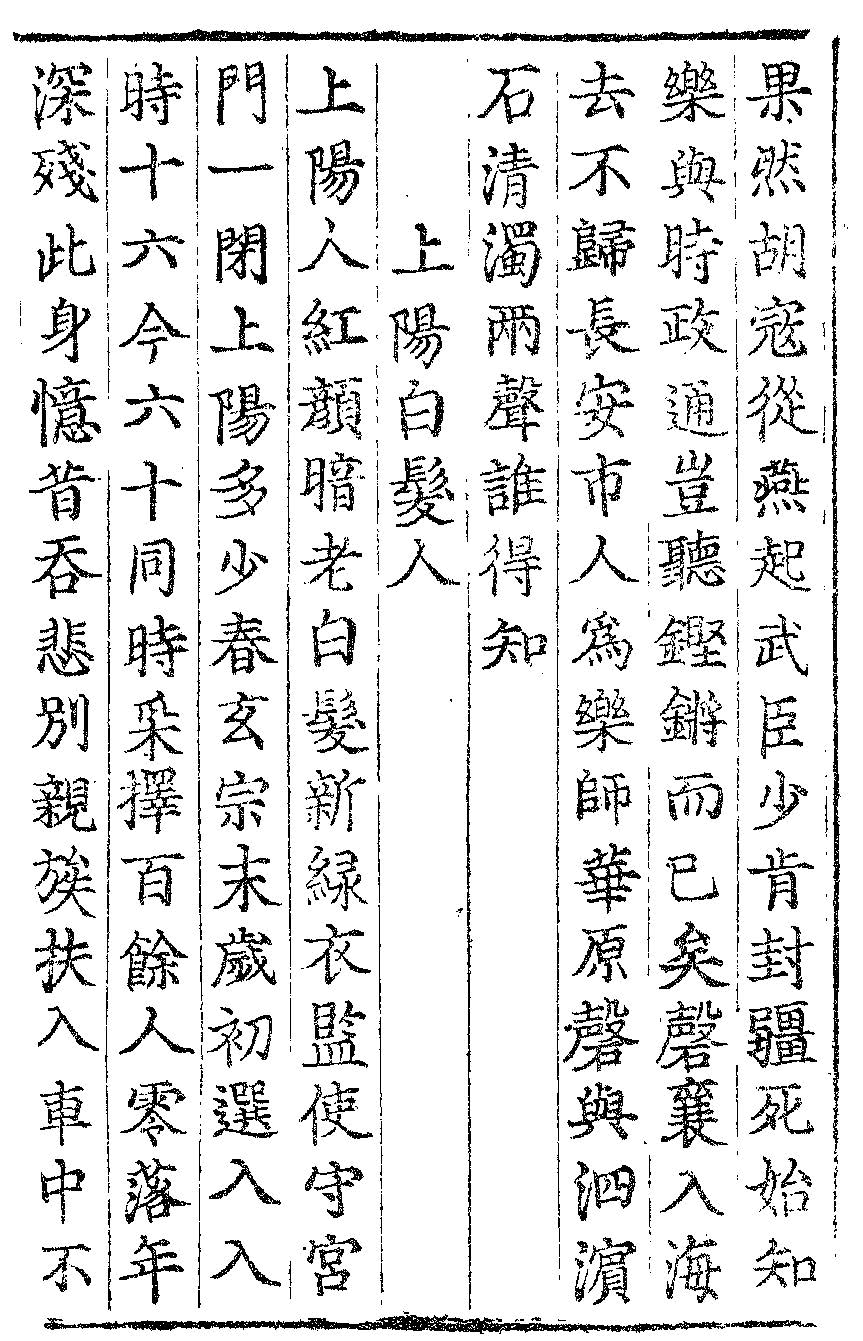 果然胡寇從燕起武臣少肯封疆死始知
樂與時政通豈聽鏗鏘而已矣磬襄入海
去不歸長安市人為樂師華原磬與泗濵
石清濁兩聲誰得知
上陽白髮人
上陽人紅顔暗老白髮新緑衣監使守宮
門一閉上陽多少春玄宗末歲初選入入
時十六今六十同時采擇百餘人零落年
深殘此身憶昔吞悲別親族扶入車中不